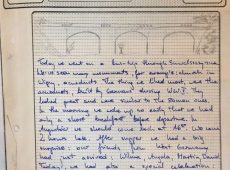 Today we went on a bus-trip through Suwalszczyzna.
We've seen many monuments, for example: church in
Wigry, aqueducts. The thing we liked most was the
aqueducts, built by Germans during WW I. They
looked great and were similar to the Roman ones.
In the morning we woke up so early, that we had
only a short breakfast before departure. In
Augustów we should come back at 16:00
hours late. After supper we had a big
surprise: our friends from West Germany
had just arrived: Angela, Martin, Daniel
we had also a special celebration: